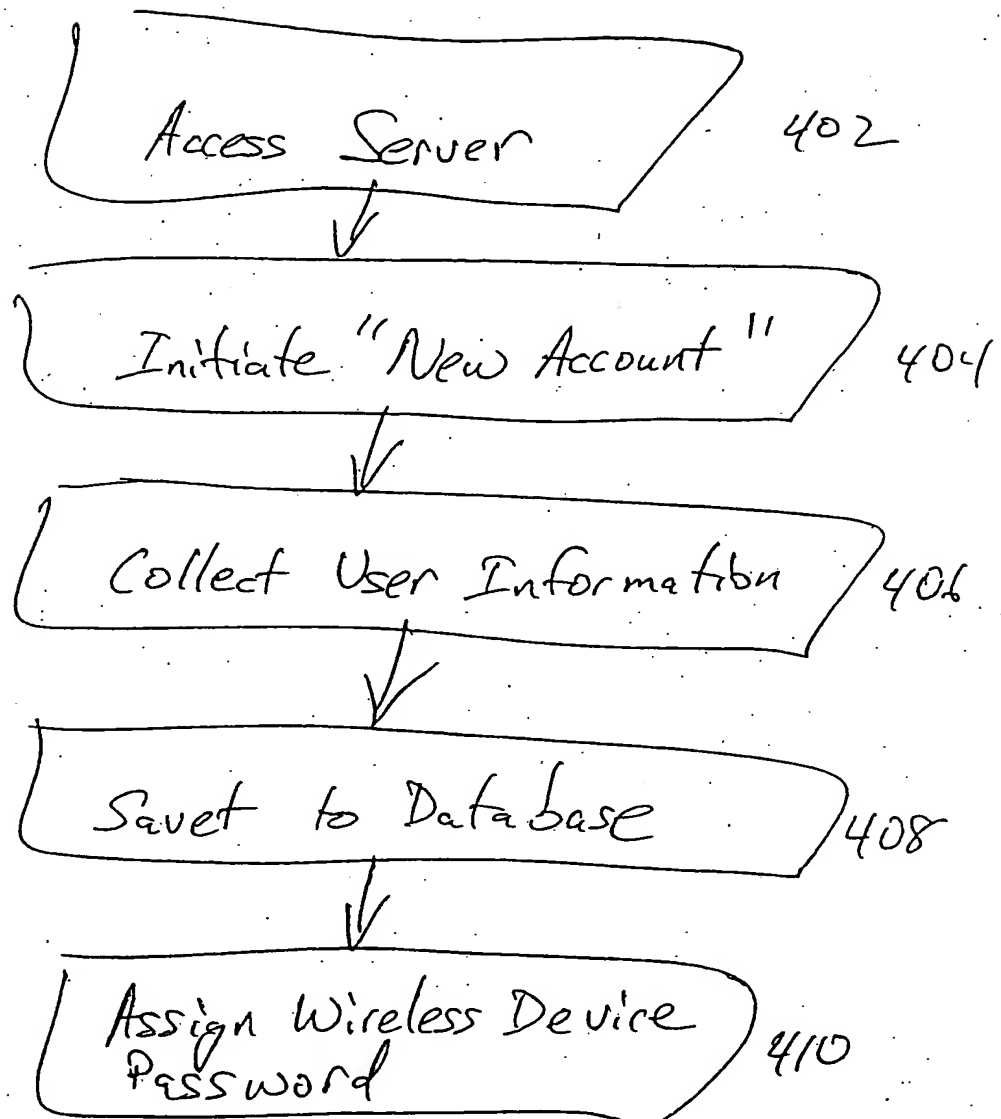 Access Server
402
Initiate "New Account"
404
Collect User Information
406
Savet to Database
408
Assign Wireless Device
Password
410